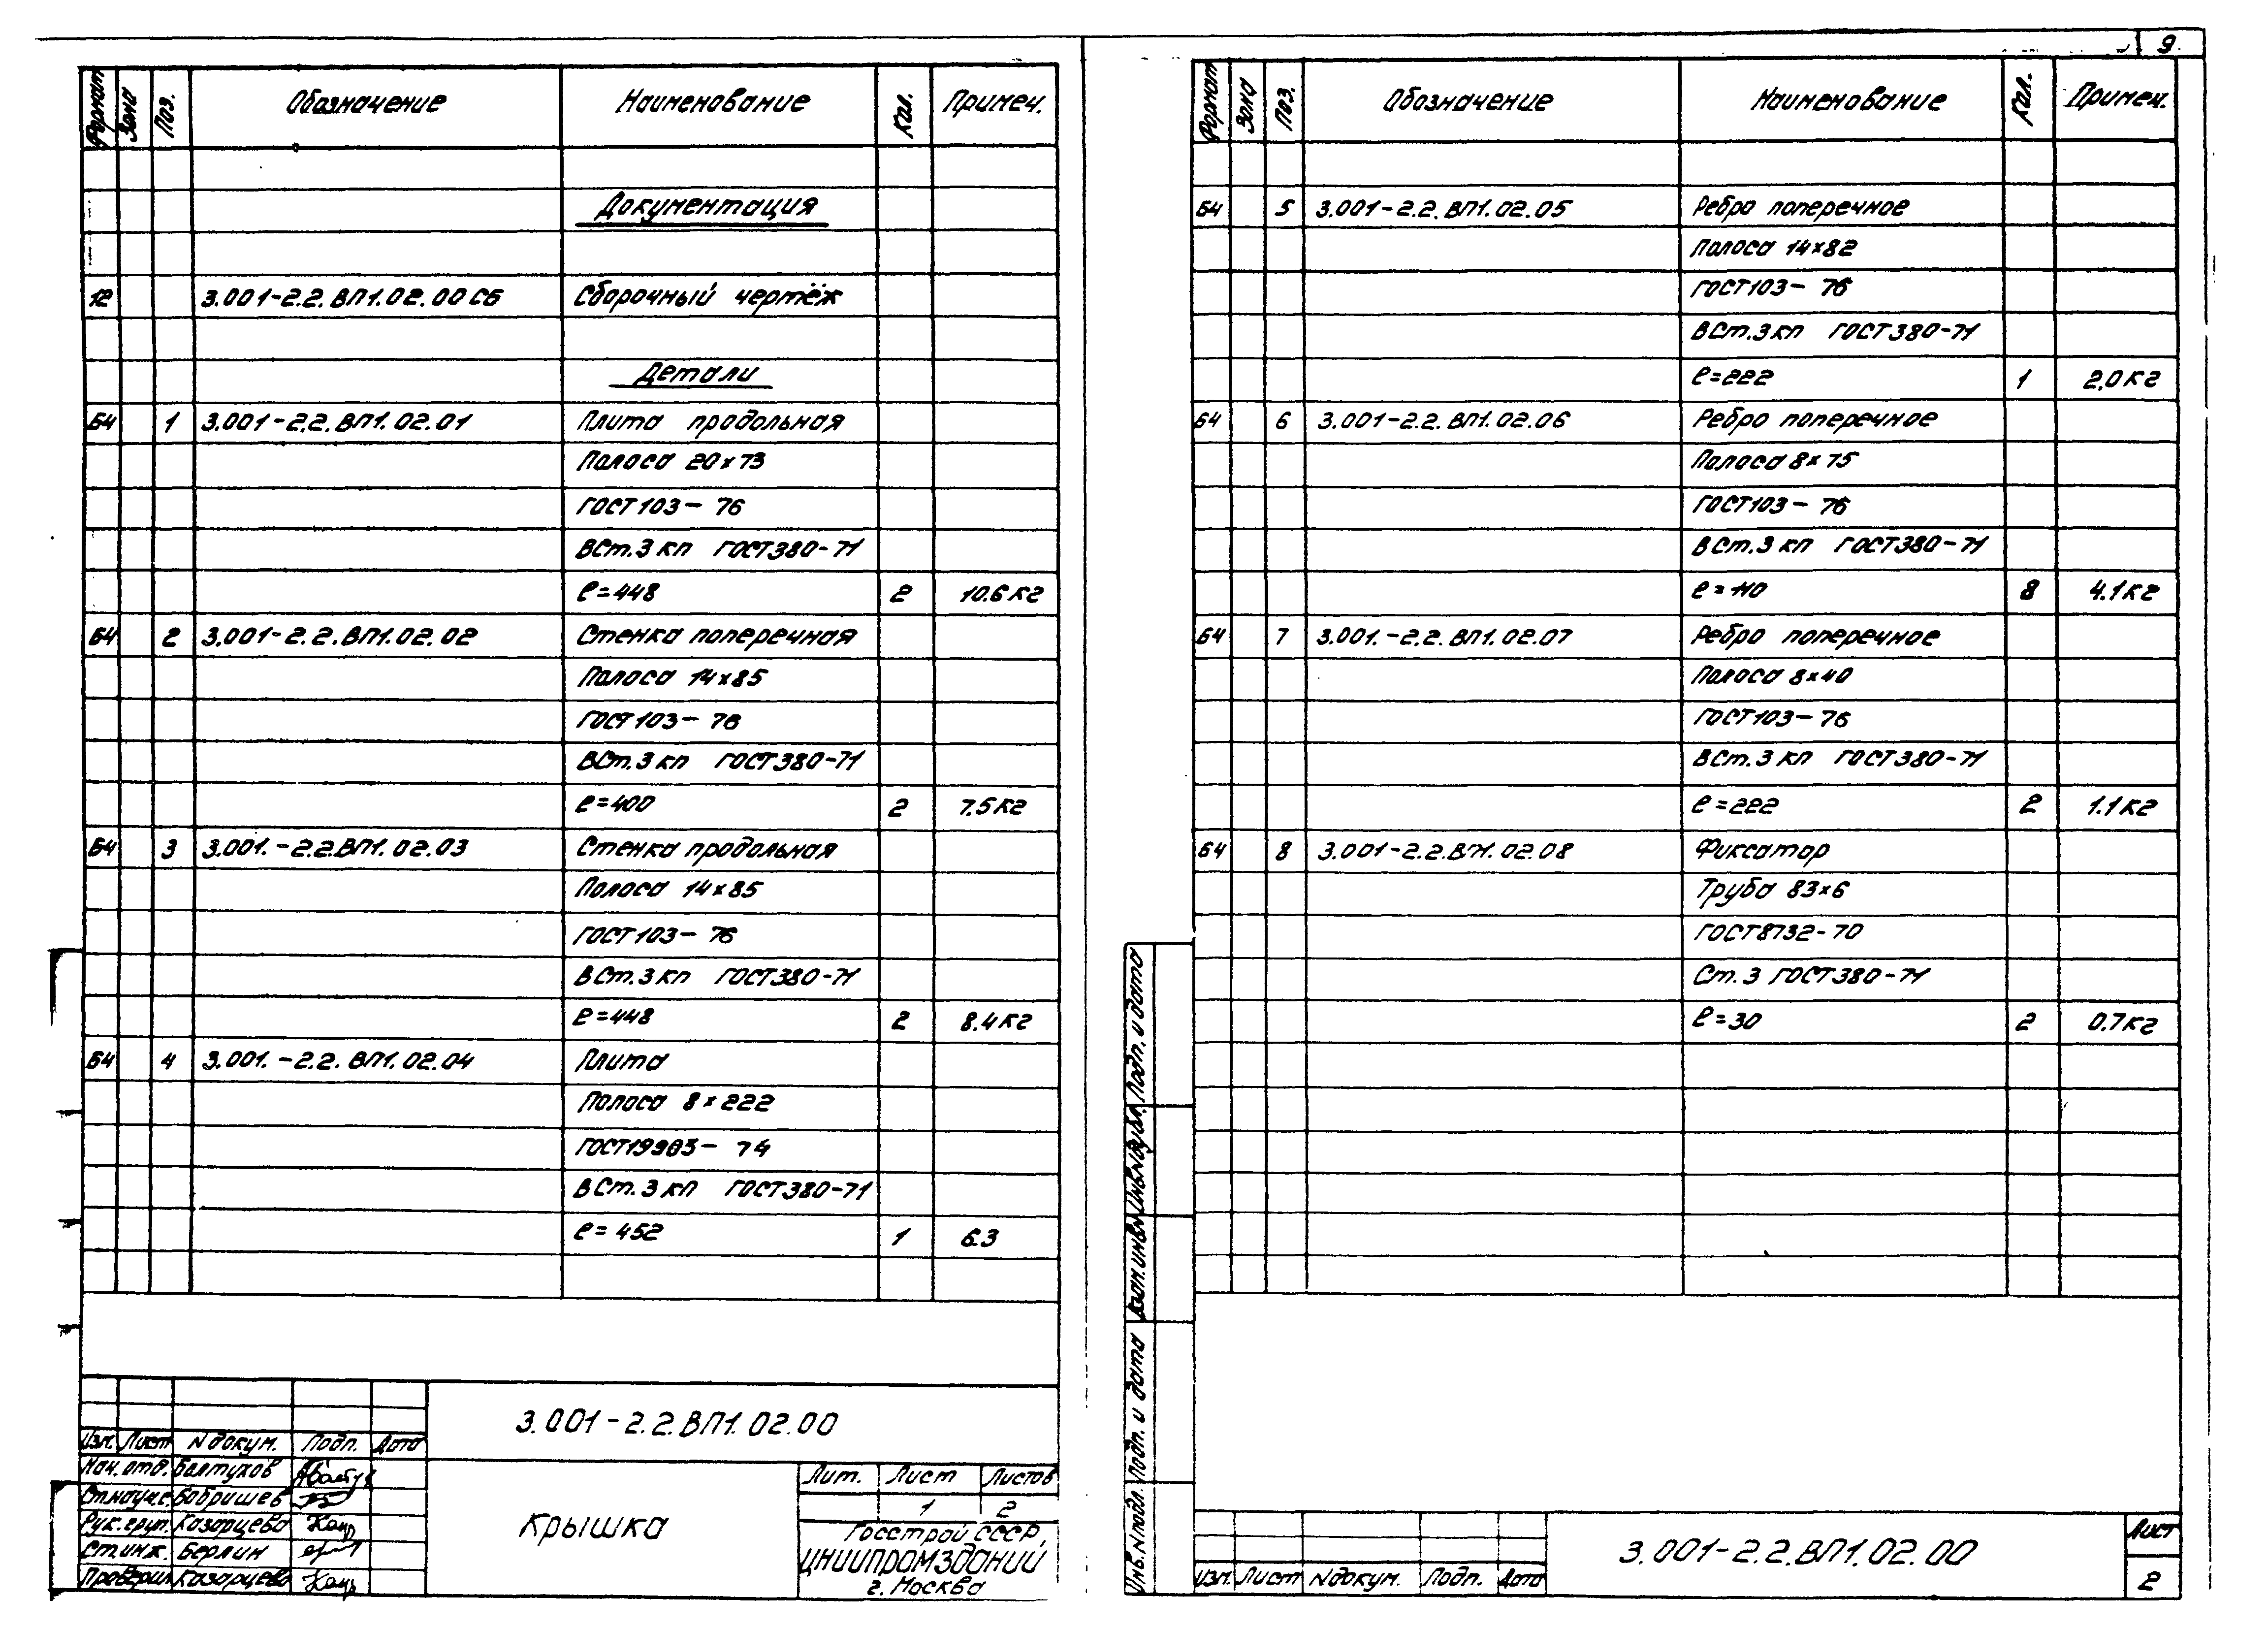 9
Формат Зона Поз. Обозначение Наименование Кол. Примеч.
Документация
12 3.001-2.2.ВП1.02.00СБ Сборочный чертёж
Детали
Б4 1 3.001-2.2.ВП1.02.01 Плита продольная
Полоса 20х73
ГОСТ103-76
ВСт.3кп ГОСТ380-71
ℓ=448 2 10.6кг
Б4 2 3.001-2.2.ВП1.02.02 Стенка поперечная
Полоса 14х85
ГОСТ103-76
ВСт.3кп ГОСТ380-71
ℓ=400 2 7.5кг
Б4 3 3.001.-2.2.ВП1.02.03 Стенка продольная
Полоса 14х85
ГОСТ103-76
ВСт.3кп ГОСТ380-71
ℓ=448 2 8.4кг
Б4 4 3.001.-2.2.ВП1.02.04 Плита
Полоса 8х222
ГОСТ19903-74
ВСт.3кп ГОСТ380-71
ℓ=452 1 6.3
3.001-2.2.ВП1.02.00
Изм. Лист Nдокум. Подп. Дата
Нач.отд. Балтухов
Ст.науч.с. Бобришев
Рук.груп. Казарцева
Ст.инж. Берлин
Проверил Казарцева
Крышка
Лит. Лист Листов
1 2
Госстрой СССР,
ЦНИИПРОМЗДАНИЙ
г. Москва
Формат Зона Поз. Обозначение Наименование Кол. Примеч.
Б4 5 3.001-2.2.ВП1.02.05 Ребро поперечное
Полоса 14х82
ГОСТ103-76
ВСт.3кп ГОСТ380-71
ℓ=222 1 2.0кг
Б4 6 3.001-2.2.ВП1.02.06 Ребро поперечное
Полоса 8х75
ГОСТ103-76
ВСт.3кп ГОСТ380-71
ℓ=110 8 4.1кг
Б4 7 3.001.-2.2.ВП1.02.07 Ребро поперечное
Полоса 8х40
ГОСТ103-76
ВСт.3кп ГОСТ380-71
ℓ=222 2 1.1кг
Б4 8 3.001-2.2.ВП1.02.08 Фиксатор
Труба 83х6
ГОСТ8732-70
Ст.3 ГОСТ380-71
ℓ=30 2 0.7кг
Инв.Nподл. Подп. и дата Взам.инв.N Инв.Nдубл. Подп. и дата
Изм. Лист Nдокум. Подп. Дата
3.001-2.2.ВП1.02.00
Лист
2